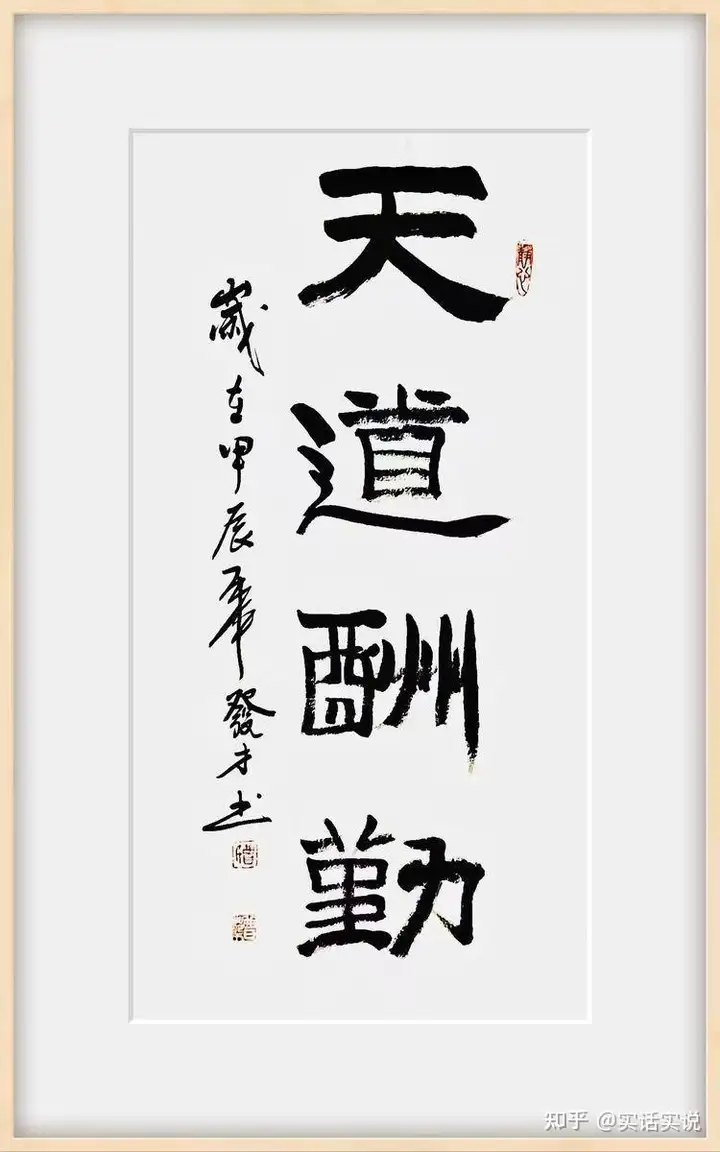 天道酬勤
歲在甲辰年發才书
知乎 @实话实说